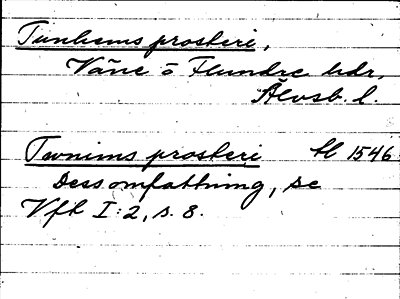 Tunhems prosteri,
Väne o Flundre hdr,
Älvsb. l.
Twnims prosteri  tl 1546
Dess omfattning, se
Vfh I:2, s. 8.